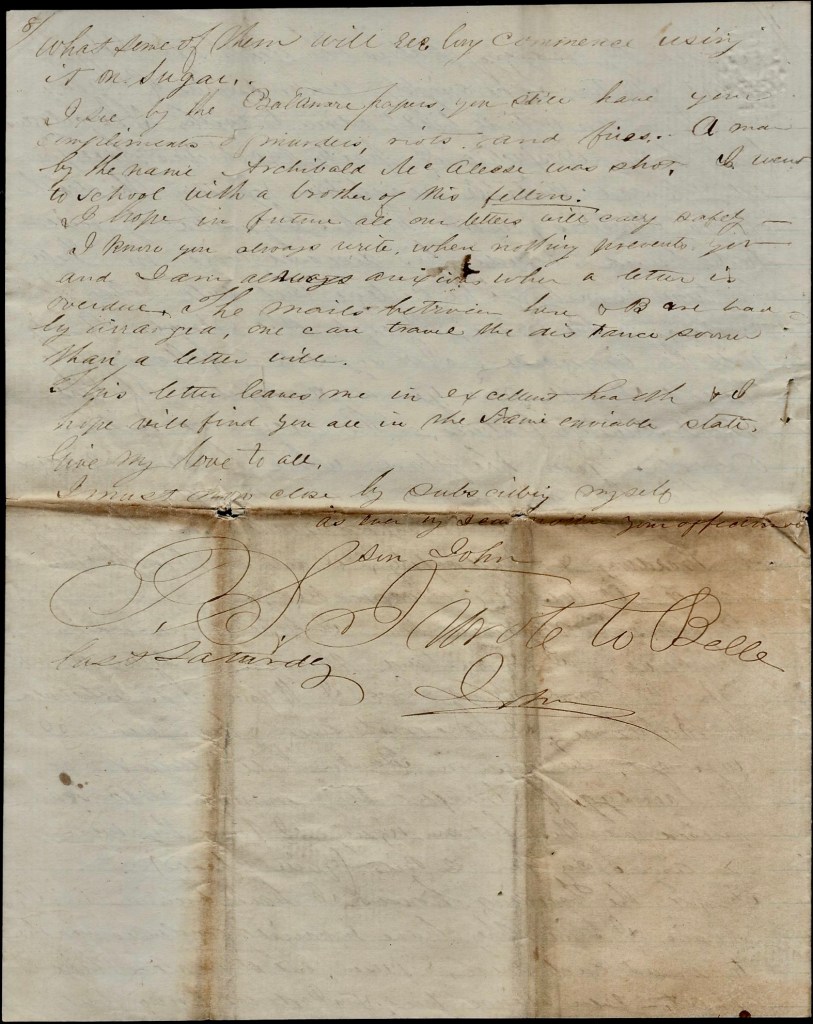 8/
What some of them will
commence using
it on Sugar.
I see by the Baltimore papers, you still have your
compliments of murders, riots, and fires. A man
by the name Archibald Mc Aleese was shot. I went
to school with a brother of this fellow.
I hope in future all our letters will carry safely —
I know you always write, when nothing prevents you
and I am always anxious when a letter is
overdue. The mails between here & B are bad-
ly arranged, one can travel the distance sooner
than a letter will.
This letter leaves me in excellent health & I
hope will find you all in the same enviable state.
Give my love to all.
I must now close by subscribing myself
as ever my dear mother your affectionate
son John
P. S. I wrote to Belle
last Saturday
John